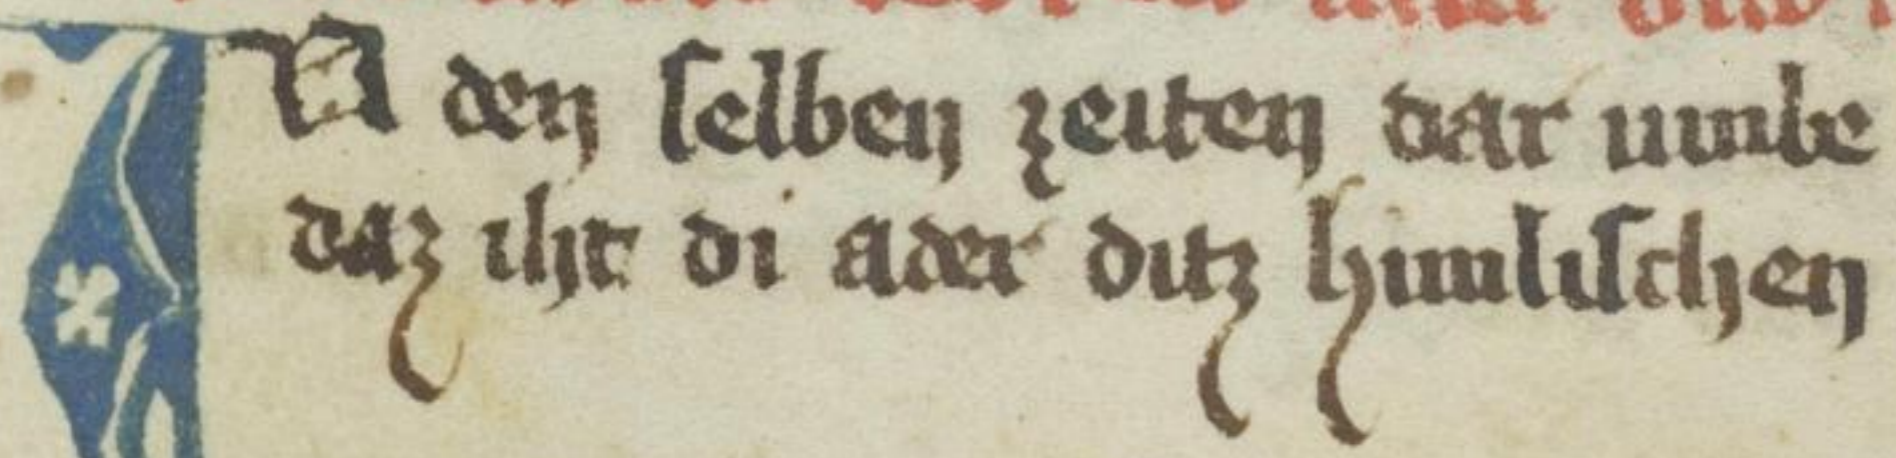 IN den selben zeiten dar umbe
daz iht di ader ditz himlischen